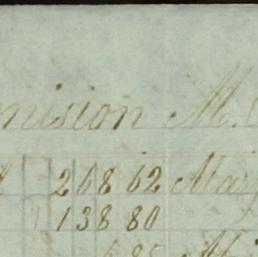 mision M.
268 62 May
138 80